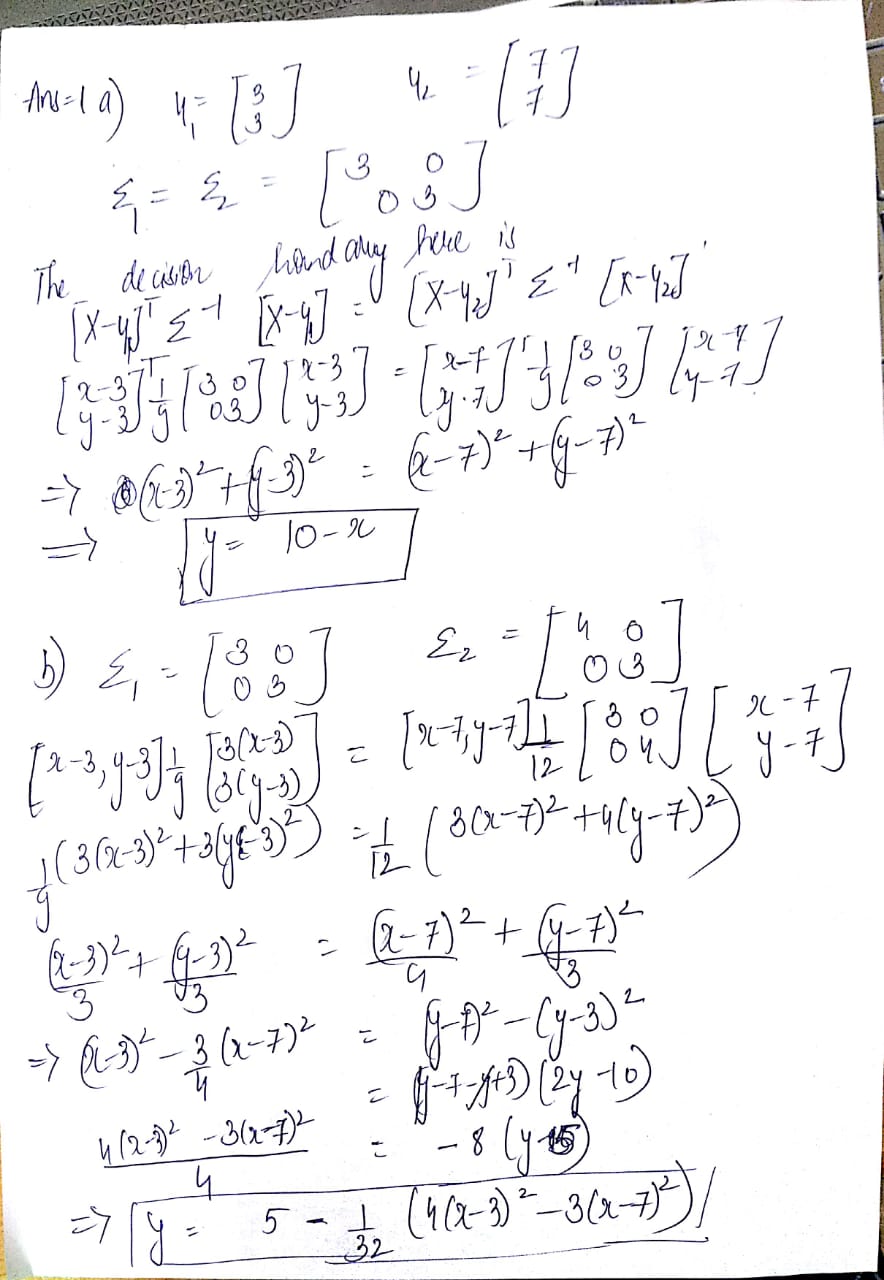 Ans=1 a) μ₁ = [3; 3] μ₂ = [7; 7]
Σ₁ = Σ₂ = [3 0; 0 3]
The decision boundary here is
[X-μ₁]ᵀ Σ⁻¹ [X-μ₁] = [X-μ₂]ᵀ Σ⁻¹ [X-μ₂]
[x-3; y-3]ᵀ 1/9 [3 0; 0 3] [x-3; y-3] = [x-7; y-7]ᵀ 1/9 [3 0; 0 3] [x-7; y-7]
=> (x-3)² + (y-3)² = (x-7)² + (y-7)²
=> y = 10-x
b) Σ₁ = [3 0; 0 3] Σ₂ = [4 0; 0 3]
[x-3, y-3] 1/9 [3(x-3); 3(y-3)] = [x-7, y-7] 1/12 [3 0; 0 4] [x-7; y-7]
1/9 (3(x-3)² + 3(y-3)²) = 1/12 (3(x-7)² + 4(y-7)²)
(x-3)²/3 + (y-3)²/3 = (x-7)²/4 + (y-7)²/3
=> (x-3)² - 3/4 (x-7)² = (y-7)² - (y-3)²
= (y-7-y+3) (2y-10)
(4(x-3)² - 3(x-7)²)/4 = -8 (y-5)
=> y = 5 - 1/32 (4(x-3)² - 3(x-7)²)